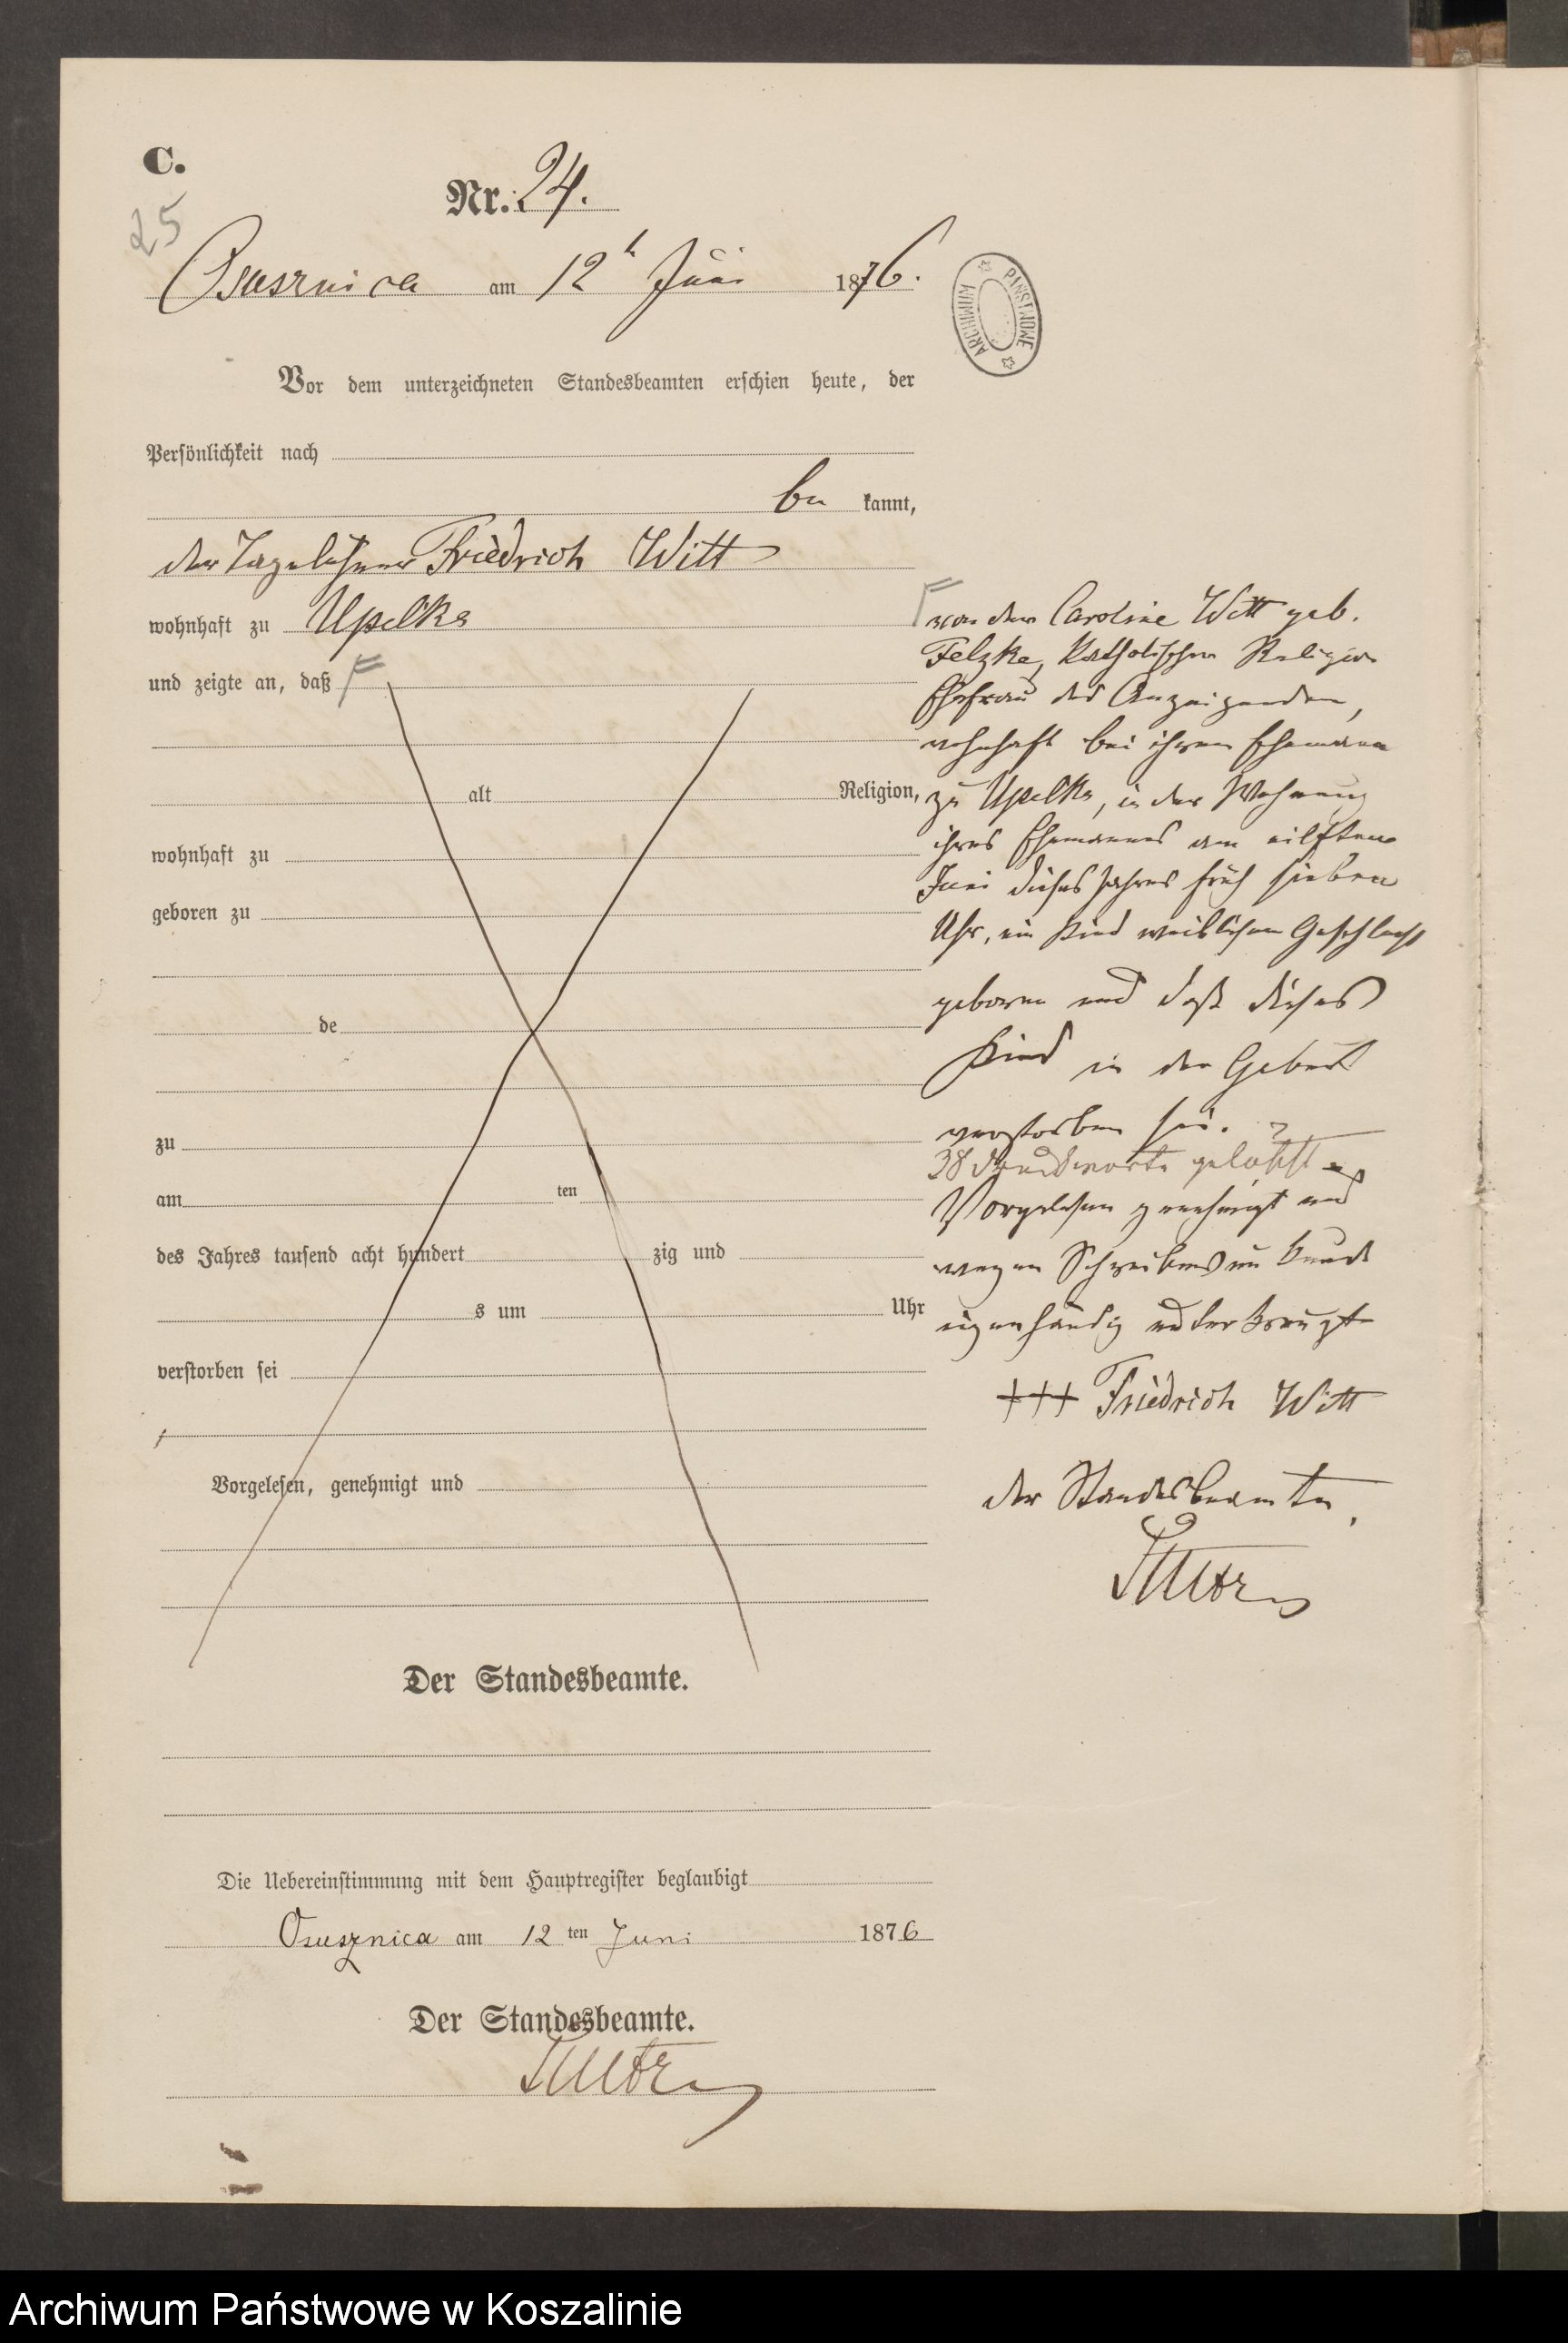 C.
25
Nr. 24.
Osusznica am 12t Juni 1876.
ARCHIWUM PAŃSTWOWE
Vor dem unterzeichneten Standesbeamten erschien heute, der
Persönlichkeit nach
be kannt,
der Tagelöhner Friedrich Witt
wohnhaft zu Upilka
und zeigte an, daß
alt Religion,
wohnhaft zu
geboren zu
de
zu
am ten
des Jahres tausend acht hundert zig und
s um Uhr
verstorben sei
Vorgelesen, genehmigt und
von der Caroline Witt geb.
Felzke, katholischer Religion
Ehefrau des Anzeigenden,
wohnhaft bei ihrem Ehemann
zu Upilka, in der Wohnung
ihres Ehemannes am eilften
Juni dieses Jahres früh sieben
Uhr, ein Kind weiblichen Geschlechts
geboren und daß dieses
Kind in der Geburt
verstorben sei.
38 Druckworte gelöscht
Vorgelesen genehmigt und
wegen Schreibensunkunde
eigenhändig unterkreuzt
+++ Friedrich Witt
der Standesbeamte,
Der Standesbeamte.
Die Uebereinstimmung mit dem Hauptregister beglaubigt
Osusznica am 12 ten Juni 1876
Der Standesbeamte.
Archiwum Państwowe w Koszalinie